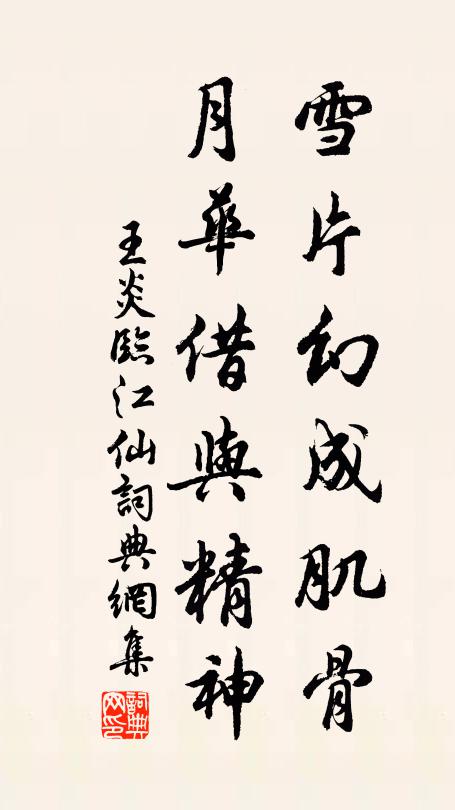 雪片幻成肌骨
月華借與精神
王炎臨江仙詞典網集
詞典网印